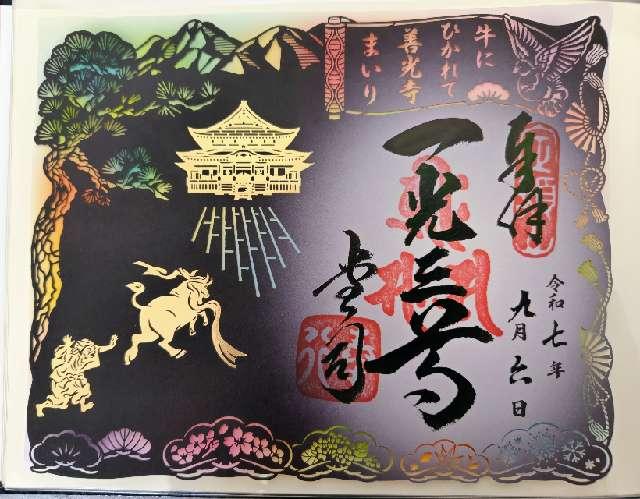 牛に
ひかれて
善光寺
まいり
奉拝
一光三尊
令和七年
九月六日